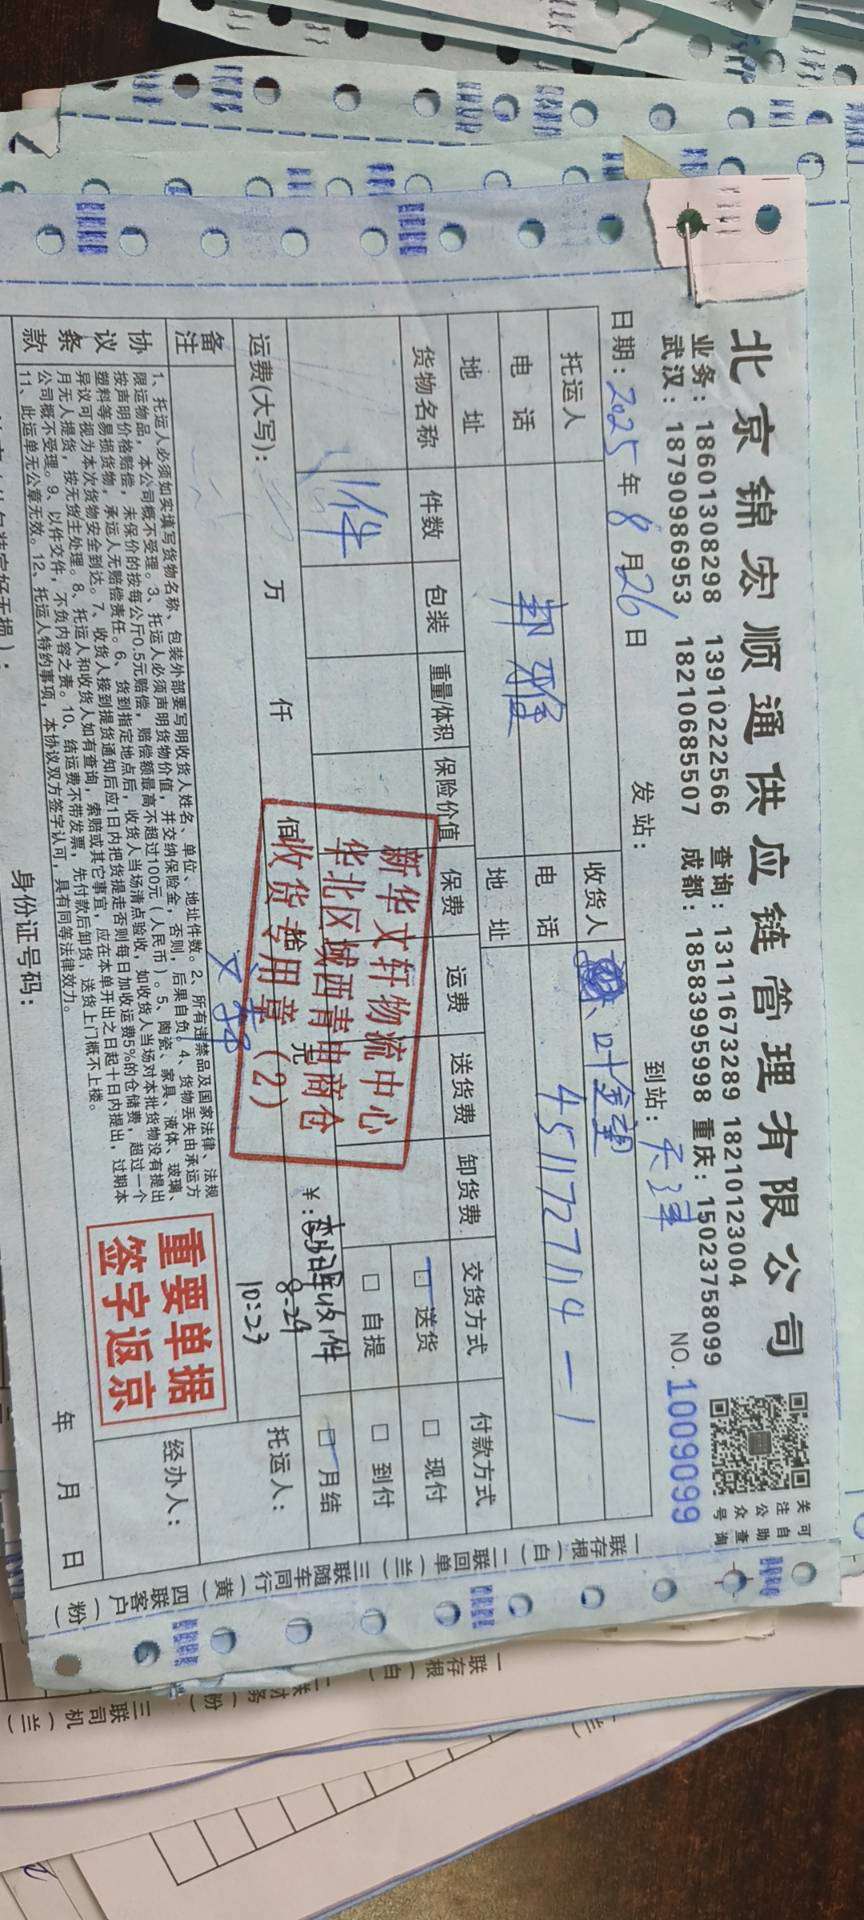 北京锦宏顺通供应链管理有限公司
关注公众号
可自助查询
业务：18601308298 13910222566 查询：13111673289 18210123004
武汉：18790986953 18210685507 成都：18583995998 重庆：15023758099
NO.1009099
日期：2025年8月26日 发站： 到站：天津
托运人 收货人 叶金望
电话 轩雅 电话 4511727114-1
地址 地址
货物名称 件数 包装 重量/体积 保险价值 保费 运费 送货费 卸货费 交货方式 付款方式
件 送货 现付
自提 到付
月结
运费(大写)： 万 仟 佰 拾 元 ¥：
收件
8-29
10:23
新华文轩物流中心
华北区域西青电商仓
收货专用章（2）
备注
托运人：
协议条款
1、托运人必须如实填写货物名称、包装外部要写明收货人姓名、单位、地址件数。2、所有违禁品及国家法律、法规
限运物品，本公司概不受理。3、托运人必须声明货物价值，并交纳保险金，否则，后果自负。4、货物丢失由承运方
按声明价格赔偿，未保价的按每公斤0.5元赔偿，赔偿额最高不超过100元（人民币）。5、陶瓷、家具、液体、玻璃、
塑料等易损货物，承运人无赔偿责任。6、货到指定地点后，收货人当场清点验收，如收货人当场对本批货物没有提出
异议可视为本次货物安全到达。7、收货人接到提货通知后应1日内把货提走否则每日加收运费5%的仓储费，超过一个
月无人提货，按无货主处理。8、托运人和收货人如有查询，索赔或其它事宜，应在本单开出之日起十日内提出，过期本
公司概不受理。9、以件交件，不负内容之责。10、结运费不带发票，先付款后卸货，送货上门概不上楼。
11、此运单无公章无效。12、托运人特约事项，本协议双方签字认可，具有同等法律效力。
重要单据
签字返京
经办人：
身份证号码： 年 月 日
一联存根（白） 二联回单（兰） 三联随车同行（黄） 四联客户（粉）